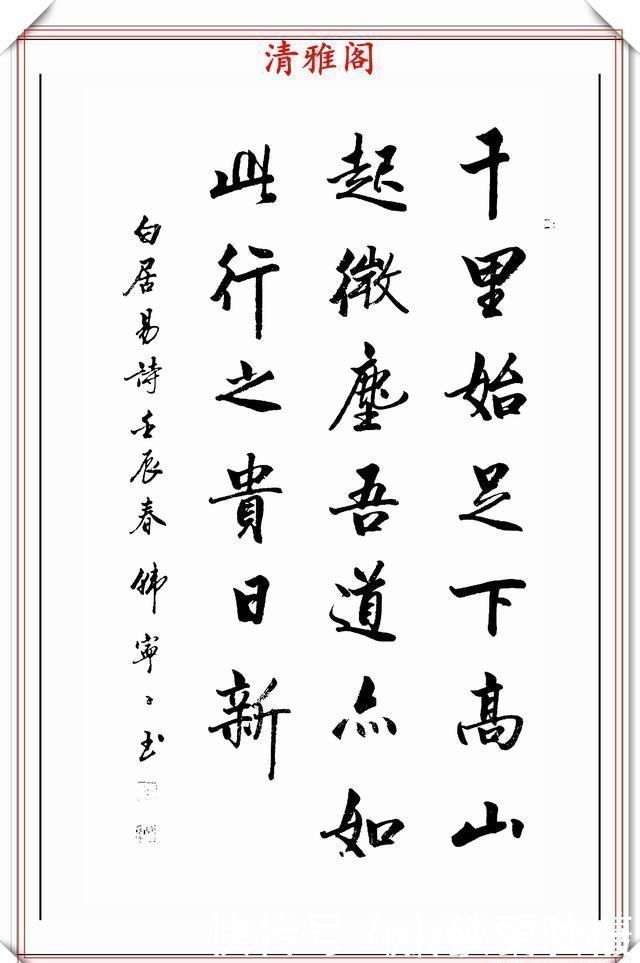 清雅阁
千里始足下高山
起微塵吾道亦如
此行之貴日新
白居易詩壬辰春韩寧寧书